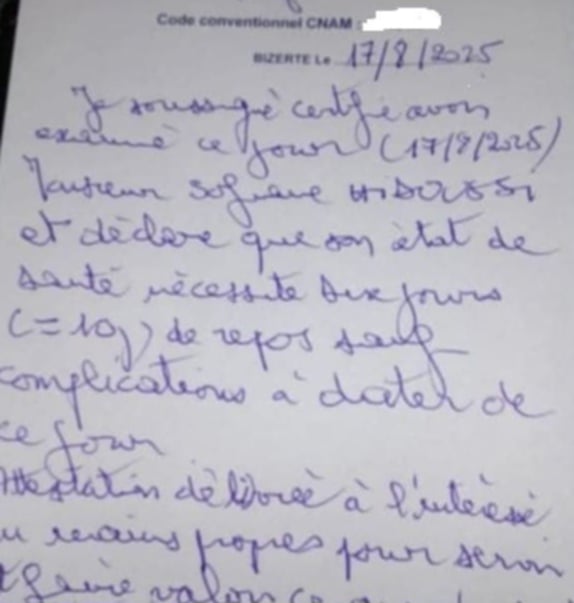 Code conventionnel CNAM :
BIZERTE Le 17/8/2025
Je soussigné certifie avoir
examiné ce jour (17/8/2025)
Monsieur Sofiane HIDOUSSI
et déclare que son état de
santé nécessite dix jours
(=10j) de repos sauf
complications à dater de
ce jour
Attestation délivrée à l'intéressé
mains propres pour servir
faire valoir ce que